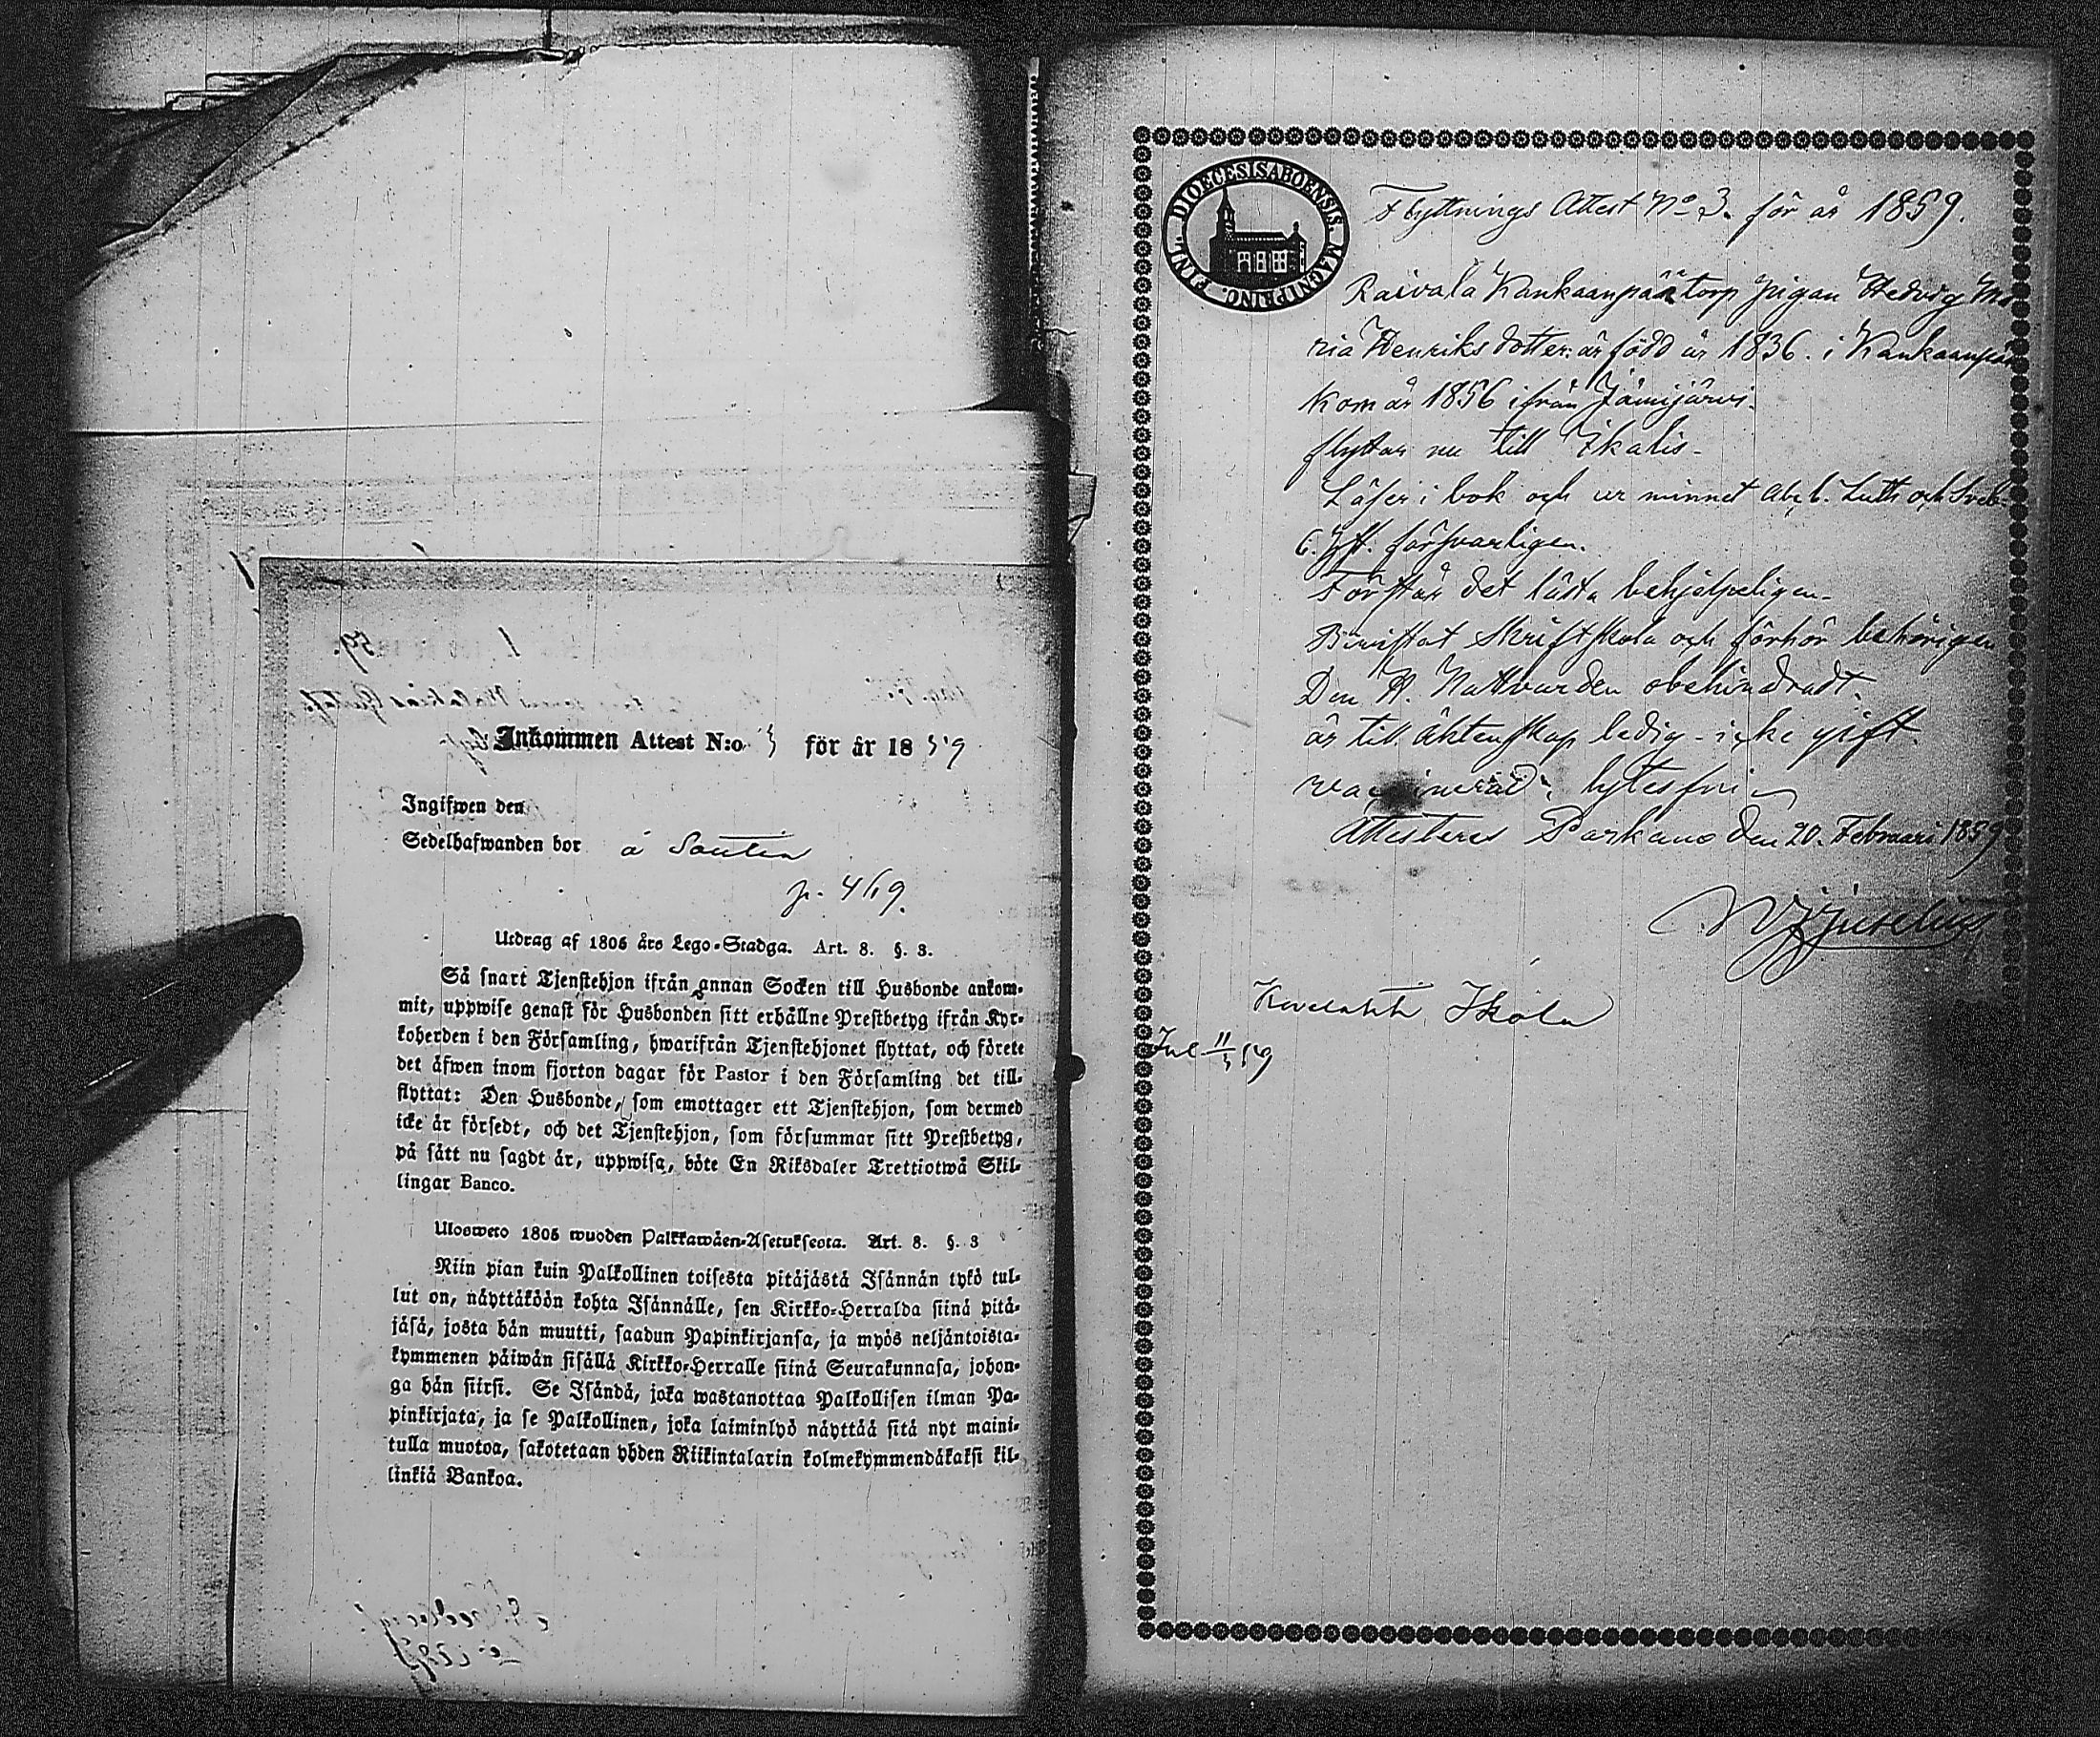 Inkommen Attest N:o 3 för år 1859
Ingifwen den
Sedelhafwanden bor á
p. 469.
Utdrag af 1805 års Lego-Stadga. Art. 8. §. 3.
Så snart Tjenstehjon ifrån annan Socken till Husbonde ankom-
mit, uppwise genast för Husbonden sitt erhållne Prestbetyg ifrån Kyr-
koherden i den Församling, hwarifrån Tjenstehjonet flyttat, och förete
det äfwen inom fjorton dagar för Pastor i den Församling det till-
flyttat: Den Husbonde, som emottager ett Tjenstehjon, som dermed
icke är försedt, och det Tjenstehjon, som försummar sitt Prestbetyg,
på sätt nu sagdt är, uppwisa, böte En Riksdaler Trettiotwå Skil-
lingar Banco.
Ulosweto 1805 wuoden Palkkawäen-Asetuksesta. Art. 8. §. 3
Niin pian kuin Palkollinen toisesta pitäjästä Isännän tykö tul-
lut on, näyttäköön kohta Isännälle, sen Kirkko-Herralda siinä pitä-
jäsä, josta hän muutti, saadun Papinkirjansa, ja myös neljäntoista-
kymmenen päiwän sisällä Kirkko-Herralle siinä Seurakunnasa, johon-
ga hän siirsi. Se Isändä, joka wastanottaa Palkollisen ilman Pa-
pinkirjata, ja se Palkollinen, joka laiminlyö näyttää sitä nyt maini-
tulla muotoa, sakotetaan yhden Riikintalarin kolmekymmendäkaksi kil-
linkiä Bankoa.
DIOECESIS ABOENSIS. MAGNI PRINC. FINL.
Flyttnings Attest No 3. för år 1859.
Raivala Kankaanpää torp pigan Hedvig Ma
ria Henriks dotter: är född år 1836. i Kankaanpää
Kom år 1856 ifrån Jämijärvi.
flyttar nu till Ikalis.
Läser i bok och ur minnet Abc b. Luth och Sveb
C. försvarligen.
Förstår det lästa behjelpeligen.
Bevistat Skriftskola och förhör behörigen
Den H. Nattvarden obehindradt.
är till Äktenskap ledig - icke gift.
vaccinerad, lytesfri
Attesteras Parkano den 20. Februari 1859
Juselius
Kovelahti, Ikola